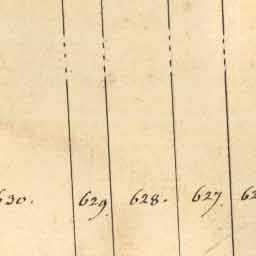 630. 629. 628. 627. 62